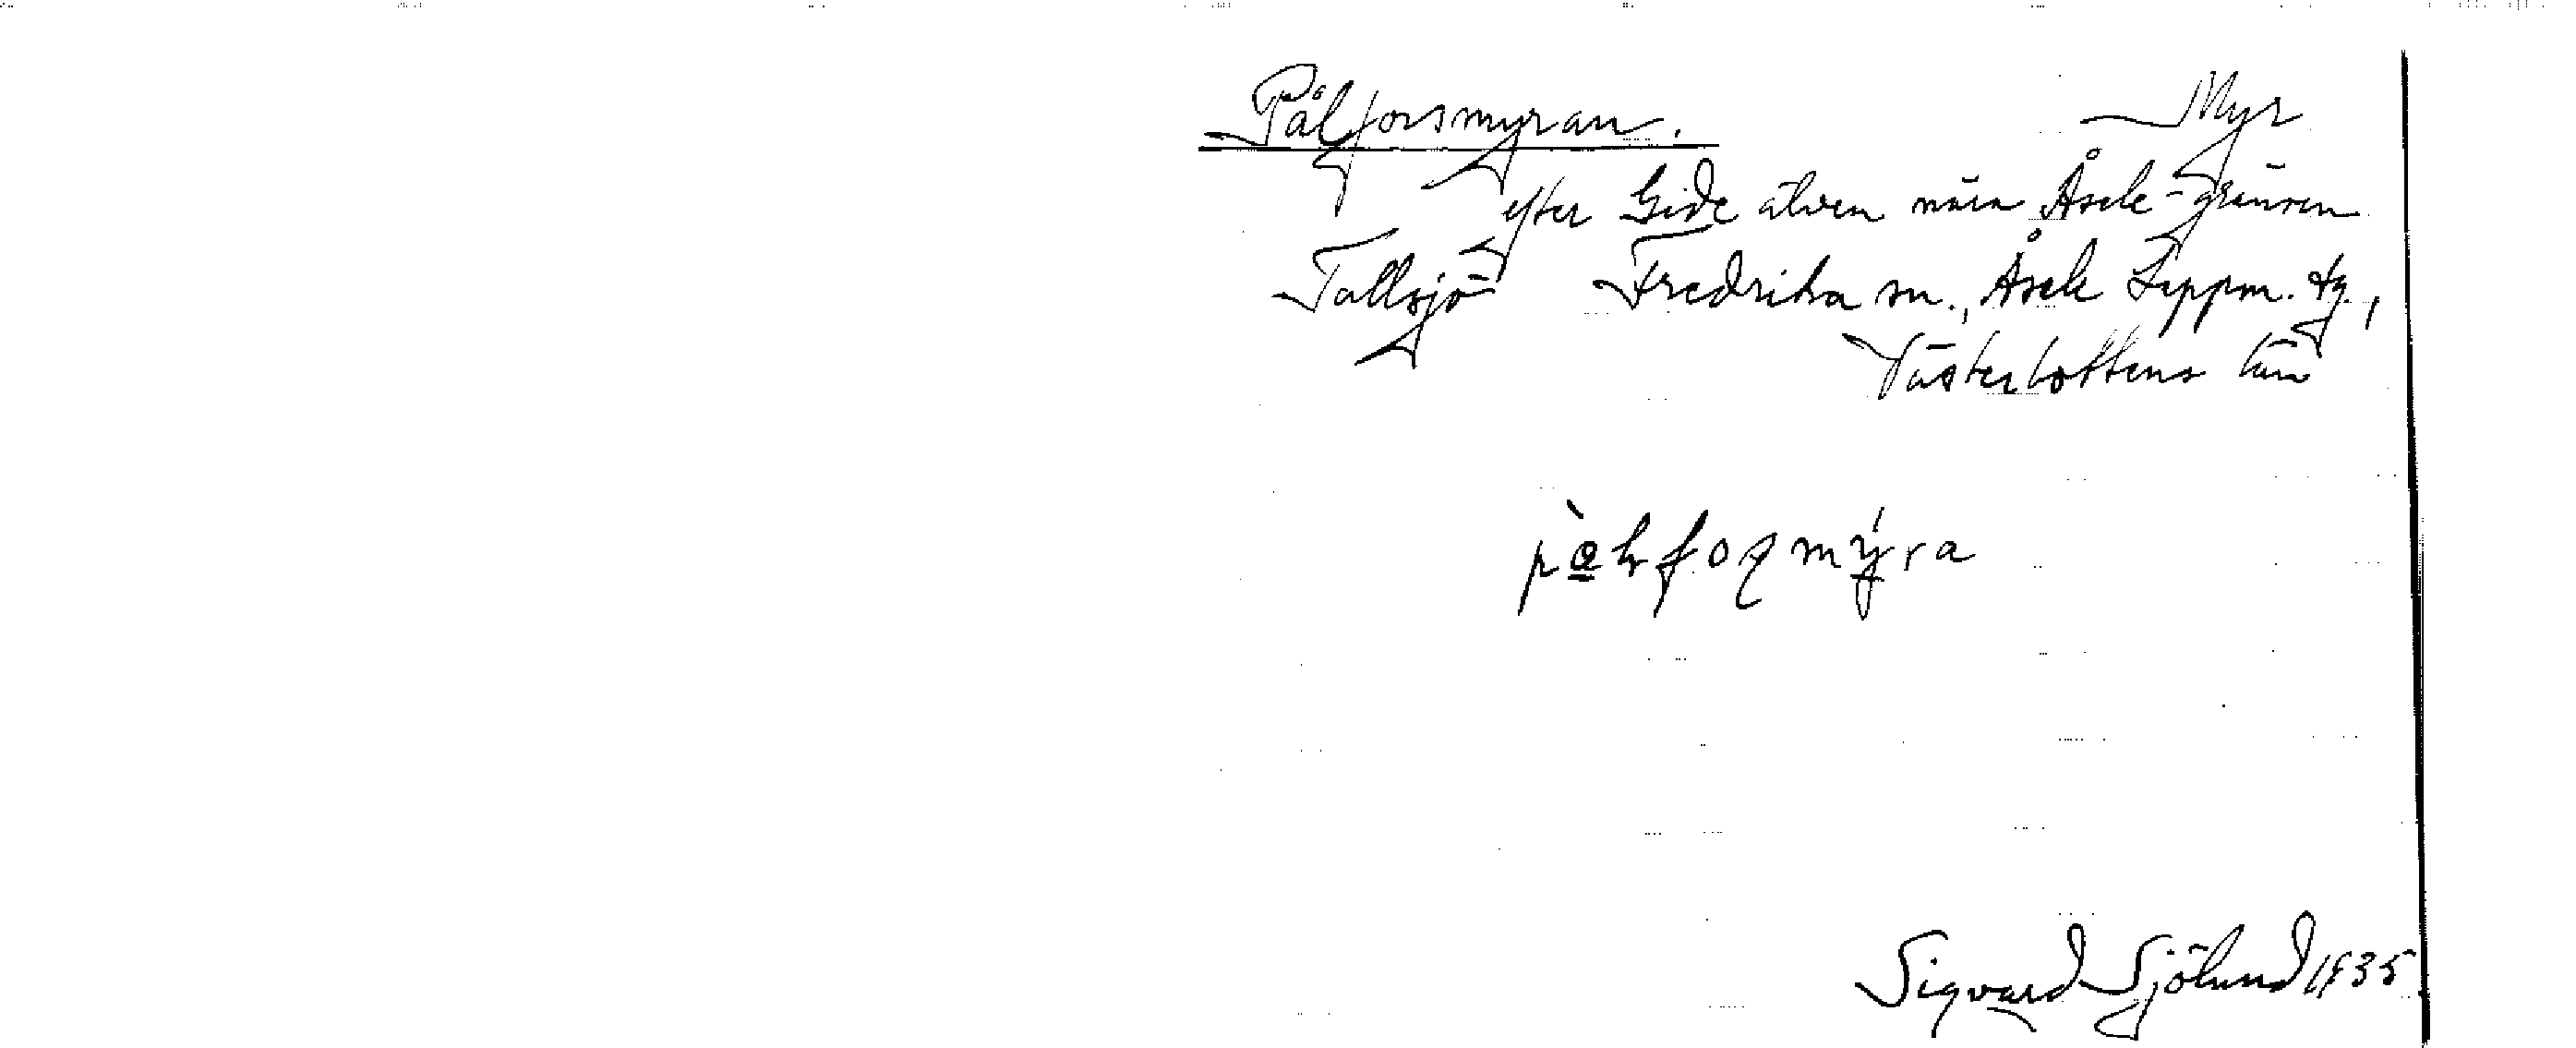 Pålforsmyran. Myr
efter Gide älven nära Åsele-gränsen
Tallsjö Fredrika sn., Åsele Lappm. tg,
Västerbottens län
Sigvard Sjölund 1935